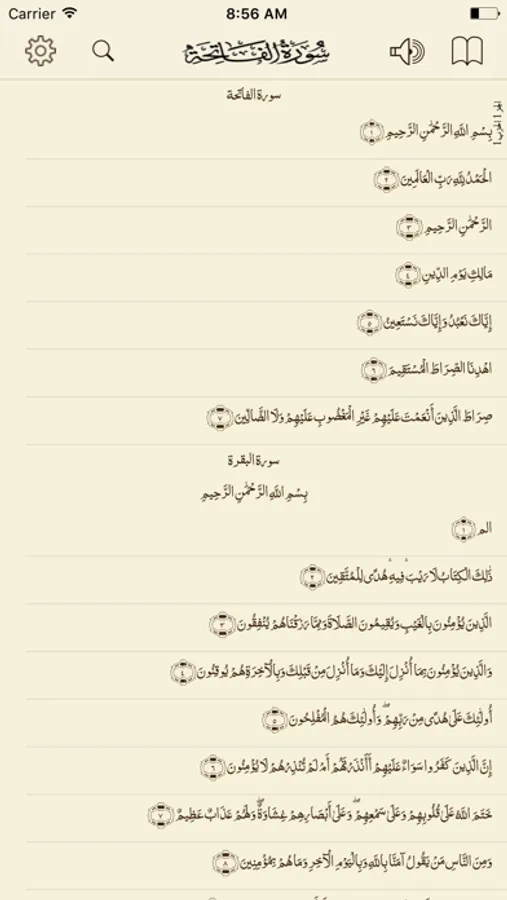 Carrier 8:56 AM
سورة الفاتحة
سورة الفاتحة
الجزء ١ الحزب ١
بِسْمِ اللَّهِ الرَّحْمَٰنِ الرَّحِيمِ ١
الْحَمْدُ لِلَّهِ رَبِّ الْعَالَمِينَ ٢
الرَّحْمَٰنِ الرَّحِيمِ ٣
مَالِكِ يَوْمِ الدِّينِ ٤
إِيَّاكَ نَعْبُدُ وَإِيَّاكَ نَسْتَعِينُ ٥
اهْدِنَا الصِّرَاطَ الْمُسْتَقِيمَ ٦
صِرَاطَ الَّذِينَ أَنْعَمْتَ عَلَيْهِمْ غَيْرِ الْمَغْضُوبِ عَلَيْهِمْ وَلَا الضَّالِّينَ ٧
سورة البقرة
بِسْمِ اللَّهِ الرَّحْمَٰنِ الرَّحِيمِ
الم ١
ذَٰلِكَ الْكِتَابُ لَا رَيْبَ ۛ فِيهِ ۛ هُدًى لِلْمُتَّقِينَ ٢
الَّذِينَ يُؤْمِنُونَ بِالْغَيْبِ وَيُقِيمُونَ الصَّلَاةَ وَمِمَّا رَزَقْنَاهُمْ يُنْفِقُونَ ٣
وَالَّذِينَ يُؤْمِنُونَ بِمَا أُنْزِلَ إِلَيْكَ وَمَا أُنْزِلَ مِنْ قَبْلِكَ وَبِالْآخِرَةِ هُمْ يُوقِنُونَ ٤
أُولَٰئِكَ عَلَىٰ هُدًى مِنْ رَبِّهِمْ ۖ وَأُولَٰئِكَ هُمُ الْمُفْلِحُونَ ٥
إِنَّ الَّذِينَ كَفَرُوا سَوَاءٌ عَلَيْهِمْ أَأَنْذَرْتَهُمْ أَمْ لَمْ تُنْذِرْهُمْ لَا يُؤْمِنُونَ ٦
خَتَمَ اللَّهُ عَلَىٰ قُلُوبِهِمْ وَعَلَىٰ سَمْعِهِمْ ۖ وَعَلَىٰ أَبْصَارِهِمْ غِشَاوَةٌ ۖ وَلَهُمْ عَذَابٌ عَظِيمٌ ٧
وَمِنَ النَّاسِ مَنْ يَقُولُ آمَنَّا بِاللَّهِ وَبِالْيَوْمِ الْآخِرِ وَمَا هُمْ بِمُؤْمِنِينَ ٨